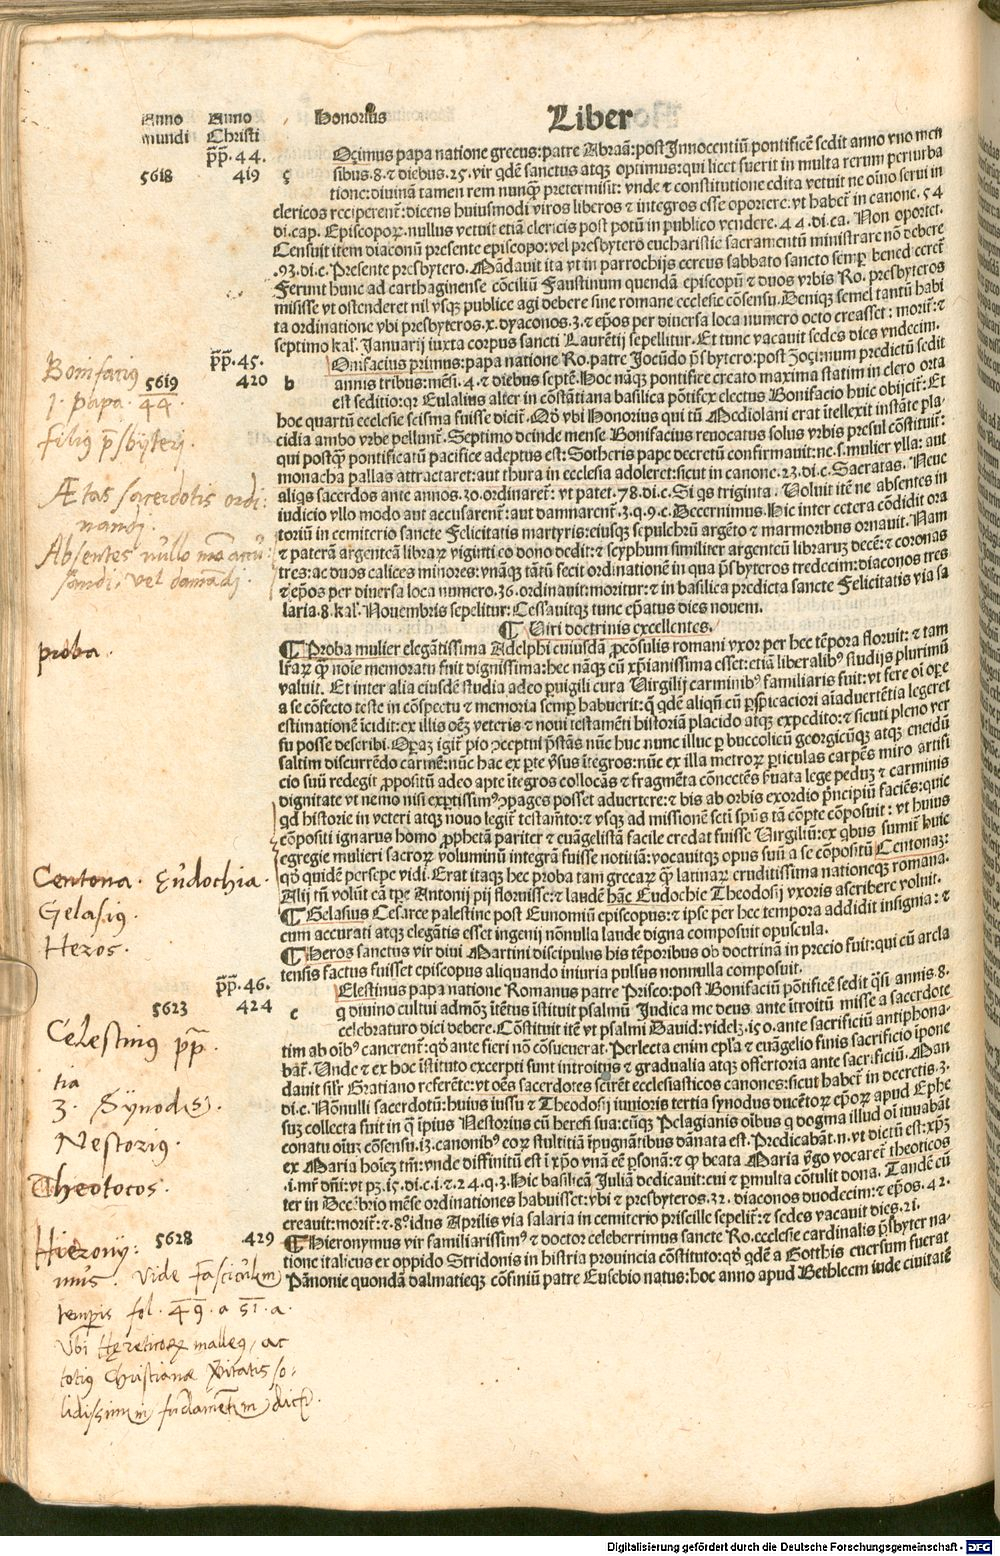 Anno Anno Honorius Liber
mundi Christi
p̄p̄.44.
Oçimus papa natione grecus:patre Abraā:post Innocentiū pontificē sedit anno vno men
5618 419 ç sibus.8.⁊ diebus.25.vir qdē sanctus atqȝ optimus:qui licet fuerit in multa rerum perturba
tione:diuinā tamen rem nunqȝ pretermisit: vnde ⁊ constitutione edita vetuit ne oīno serui in
clericos reciperent̄:dicens huiusmodi viros liberos ⁊ integros esse oportere.vt habet̄ in canone.54
di.cap. Episcoporꝝ.nullus vetuit etiā clericis post potū in publico vendere.44.di.ca. Non oportet.
Censuit item diaconū presente episcopo:vel presbytero eucharistie sacramentū ministrare nō debere
.93.di.c.Presente presbytero. Mādauit ita vt in parrochijs cereus sabbato sancto semꝑ bened ceret̄
Ferunt hunc ad carthaginense cōciliū Faustinum quendā episcopū ⁊ duos vrbis Ro. presbyteros
misisse vt ostenderet nil vsqȝ publice agi debere sine romane ecclesie cōsensu.Deniqȝ semel tantū habi
ta ordinatione vbi presbyteros.x.dyaconos.3.⁊ ep̄os per diuersa loca numero octo creasset: morit̄:⁊
septimo kal̄.Januarij iuxta corpus sancti Laurētij sepellitur.Et tunc vacauit sedes dies vndecim.
p̄p̄.45.
Onifacius primus:papa natione Ro.patre Jocūdo p̄sbytero:post Zoçi:num predictū sedit
Bonifacius
5619 420 b annis tribus:mēsi.4.⁊ diebus septē.Hoc nāqȝ pontifice creato maxima statim in clero orta
1. papa. 44.
est seditio:qꝛ Eulalius alter in cōstātiana basilica pōtifex electus Bonifacio huic obijcit̄:Et
hoc quartū ecclesie scisma fuisse dicit̄. Qd̄ vbi Honorius qui tū Mediolani erat ītellexit instāte pla-
filius p̄sbyteri.
cidia ambo vrbe pellunt̄.Septimo deinde mense Bonifacius reuocatus solus vrbis presul cōstituit̄:
qui postqȝ pontificatū pacifice adeptus est:Sotheris pape decretū confirmauit:ne.s.mulier vlla: aut
monacha pallas attractaret:aut thura in ecclesia adoleret:sicut in canone.23.di.c. Sacratas. Neue
Ætas sacerdotis ordi:
aliqs sacerdos ante annos.30.ordinaret̄: vt patet.78.di.c.Si qs triginta. Voluit itē ne absentes in
nandi.
iudicio vllo modo aut accusarent̄:aut damnarent̄.3.q.9.c.Decernimus.Hic inter cetera cōdidit ora
Absentes nullo mō accu:
toriū in cemiterio sancte Felicitatis martyris:eiusqȝ sepulchrū argēto ⁊ marmoribus ornauit.Nam
sandi, vel damādi.
⁊ paterā argenteā librarꝝ viginti eo dono dedit:⁊ scyphum similiter argenteū librarum decē:⁊ coronas
tres:ac duos calices minores:vnāqȝ tātū fecit ordinationē in qua p̄sbyteros tredecim:diaconos tres
⁊ ep̄os per diuersa loca numero.36.ordinauit:moritur:⁊ in basilica predicta sancte Felicitatis via sa
laria.8.kal̄.Nouembris sepelitur:Cessauitqȝ tunc ep̄atus dies nouem.
¶ Viri doctrinis excellentes.
proba.
¶ Proba mulier elegātissima Adelphi cuiusdā ꝓcōsulis romani vxor per hec tēpora floruit: ⁊ tam
lr̄arꝝ qȝ noīe memoratu fuit dignissima:hec nāqȝ cū xp̄ianissima esset:etiā liberalibꝰ studijs plurimū
valuit. Et inter alia eiusdē studia adeo ꝑuigili cura Virgilij carminibꝰ familiaris fuit:vt fere oī oꝑe
a se cōfecto teste in cōspectu ⁊ memoria semꝑ habuerit:q̄ qdē aliqn̄ cū ꝑspicaciori aīaduertētia legeret
estimationē īcidit:ex illis oēȝ veteris ⁊ noui testamēti historiā placido atqȝ expedito:⁊ sicuti pleno ver
su posse describi.Oꝑaȝ igit̄ pio ↄceptui p̄stās nūc huc nunc illuc ꝑ buccolicū georgicūqȝ atqȝ eneidū
saltim discurrēdo carmē:nūc hac ex ꝑte ꝟsus ītegros:nūc ex illa metrorꝝ ꝑticulas carpēs miro artifi
cio suū redegit ꝓpositū adeo apte ītegros collocās ⁊ fragmēta cōnectēs ẜuata lege peduȝ ⁊ carminis
dignitate vt nemo nisi exꝑtissimꝰ ↄpages posset aduertere:⁊ his ab orbis exordio p̄ncipiū faciēs:quic
qd historie in veteri atqȝ nouo legit̄ testam̄to:⁊ vsqȝ ad missionē scti sp̄us tā cōpte cōposuit : vt huius
cōpositi ignarus homo ꝓphetā pariter ⁊ euāgelistā facile credat fuisse Virgiliū:ex qbus sumit̄ huic
egregie mulieri sacrorꝝ voluminū integrā fuisse notitiā:vocauitqȝ opus suū a se cōpositū Centonaȝ:
Centona. Eudochia.
qd̄ quidē persepe vidi.Erat itaqȝ hec proba tam grecarꝝ qȝ latinarꝝ eruditissima nationeqȝ romana.
Alij tn̄ volūt eā tp̄e Antonij pij floruisse:⁊ laudē hāc Eudochie Theodosij vxoris ascribere volūt.
Gelasius.
¶ Gelasius Cesaree palestine post Eunomiū episcopus:⁊ ipse per hec tempora addidit insignia: ⁊
cum accurati atqȝ elegātis esset ingenij nōnulla laude digna composuit opuscula.
Heros.
¶ Heros sanctus vir diui Martini discipulus his tēporibus ob doctrinā in precio fuit:qui cū arela
tensis factus fuisset episcopus aliquando iniuria pulsus nonnulla composuit.
p̄p̄.46.
Elestinus papa natione Romanus patre Prisco:post Bonifaciū pōtificē sedit q̄si annis.8.
5623 424 c q diuino cultui admōȝ ītētus īstituit psalmū Judica me deus ante ītroitū misse a sacerdote
Celestinus pp̄.
celebraturo dici debere.Cōstituit itē vt psalmi Dauid:videlȝ.150.ante sacrificiū antiphona-
tim ab oībꝰ canerent̄:qd̄ ante fieri nō cōsueuerat.Perlecta enim epl̄a ⁊ euāgelio finis sacrificio īpone
tia
bat̄.Unde ⁊ ex hoc īstituto excerpti sunt introitus ⁊ gradualia atqȝ offertoria ante sacrificiū.Man
dauit sil̄r Gratiano referēte:vt oēs sacerdotes scirēt ecclesiasticos canones:sicut habet̄ in decretis.3.
3. Synodus.
di.c.Nōnulli sacerdotū:huius iussu ⁊ Theodosij iunioris tertia synodus ducētorꝝ ep̄orꝝ apud Ephe
sum collecta fuit in q̄ īpius Nestorius cū heresi sua:cūqȝ Pelagianis oībus q dogma illud oī iuuabāt
Nestorius.
conatu oīum cōsensu.13.canonibꝰ eorꝝ stultitiā īpugnātibus dānata est.Predicabāt.n.vt dictū est:xp̄m
ex Maria hoīeȝ tm̄:vnde diffinitū est ī xp̄o vnā eē ꝑsonā:⁊ ꝙ beata Maria ꝟgo vocaret̄ theoticos
Theotocos.
.i.mr̄ dn̄i:vt pȝ.15.di.c.1.⁊.24.q.3.Hic basilicā Juliā dedicauit:cui ⁊ permulta cōtulit dona. Tandē cū
ter in Decēbrio mēse ordinationes habuisset:vbi ⁊ presbyteros.32. diaconos duodecim:⁊ ep̄os.42.
creauit:morit̄:⁊.8º idus Aprilis via salaria in cemiterio priscille sepelit̄:⁊ sedes vacauit dies.21.
Hierony: 5628 429
¶ Hieronymus vir familiarissimꝰ ⁊ doctor celeberrimus sancte Ro.ecclesie cardinalis p̄sbyter na-
tione italicus ex oppido Stridonis in histria prouincia cōstituto:qd̄ qdē a Gotthis euersum fuerat
mus. Vide Fasciculum
Pānonie quondā dalmatieqȝ cōfiniū patre Eusebio natus:hoc anno apud Bethleem iude ciuitatē
temporis fol. 49. a 51. a.
Vbi Hereticorꝝ malleus, ac
totius Christianæ veritatis so-
lidissimum fundamentum dicitur.
Digitalisierung gefördert durch die Deutsche Forschungsgemeinschaft - DFG